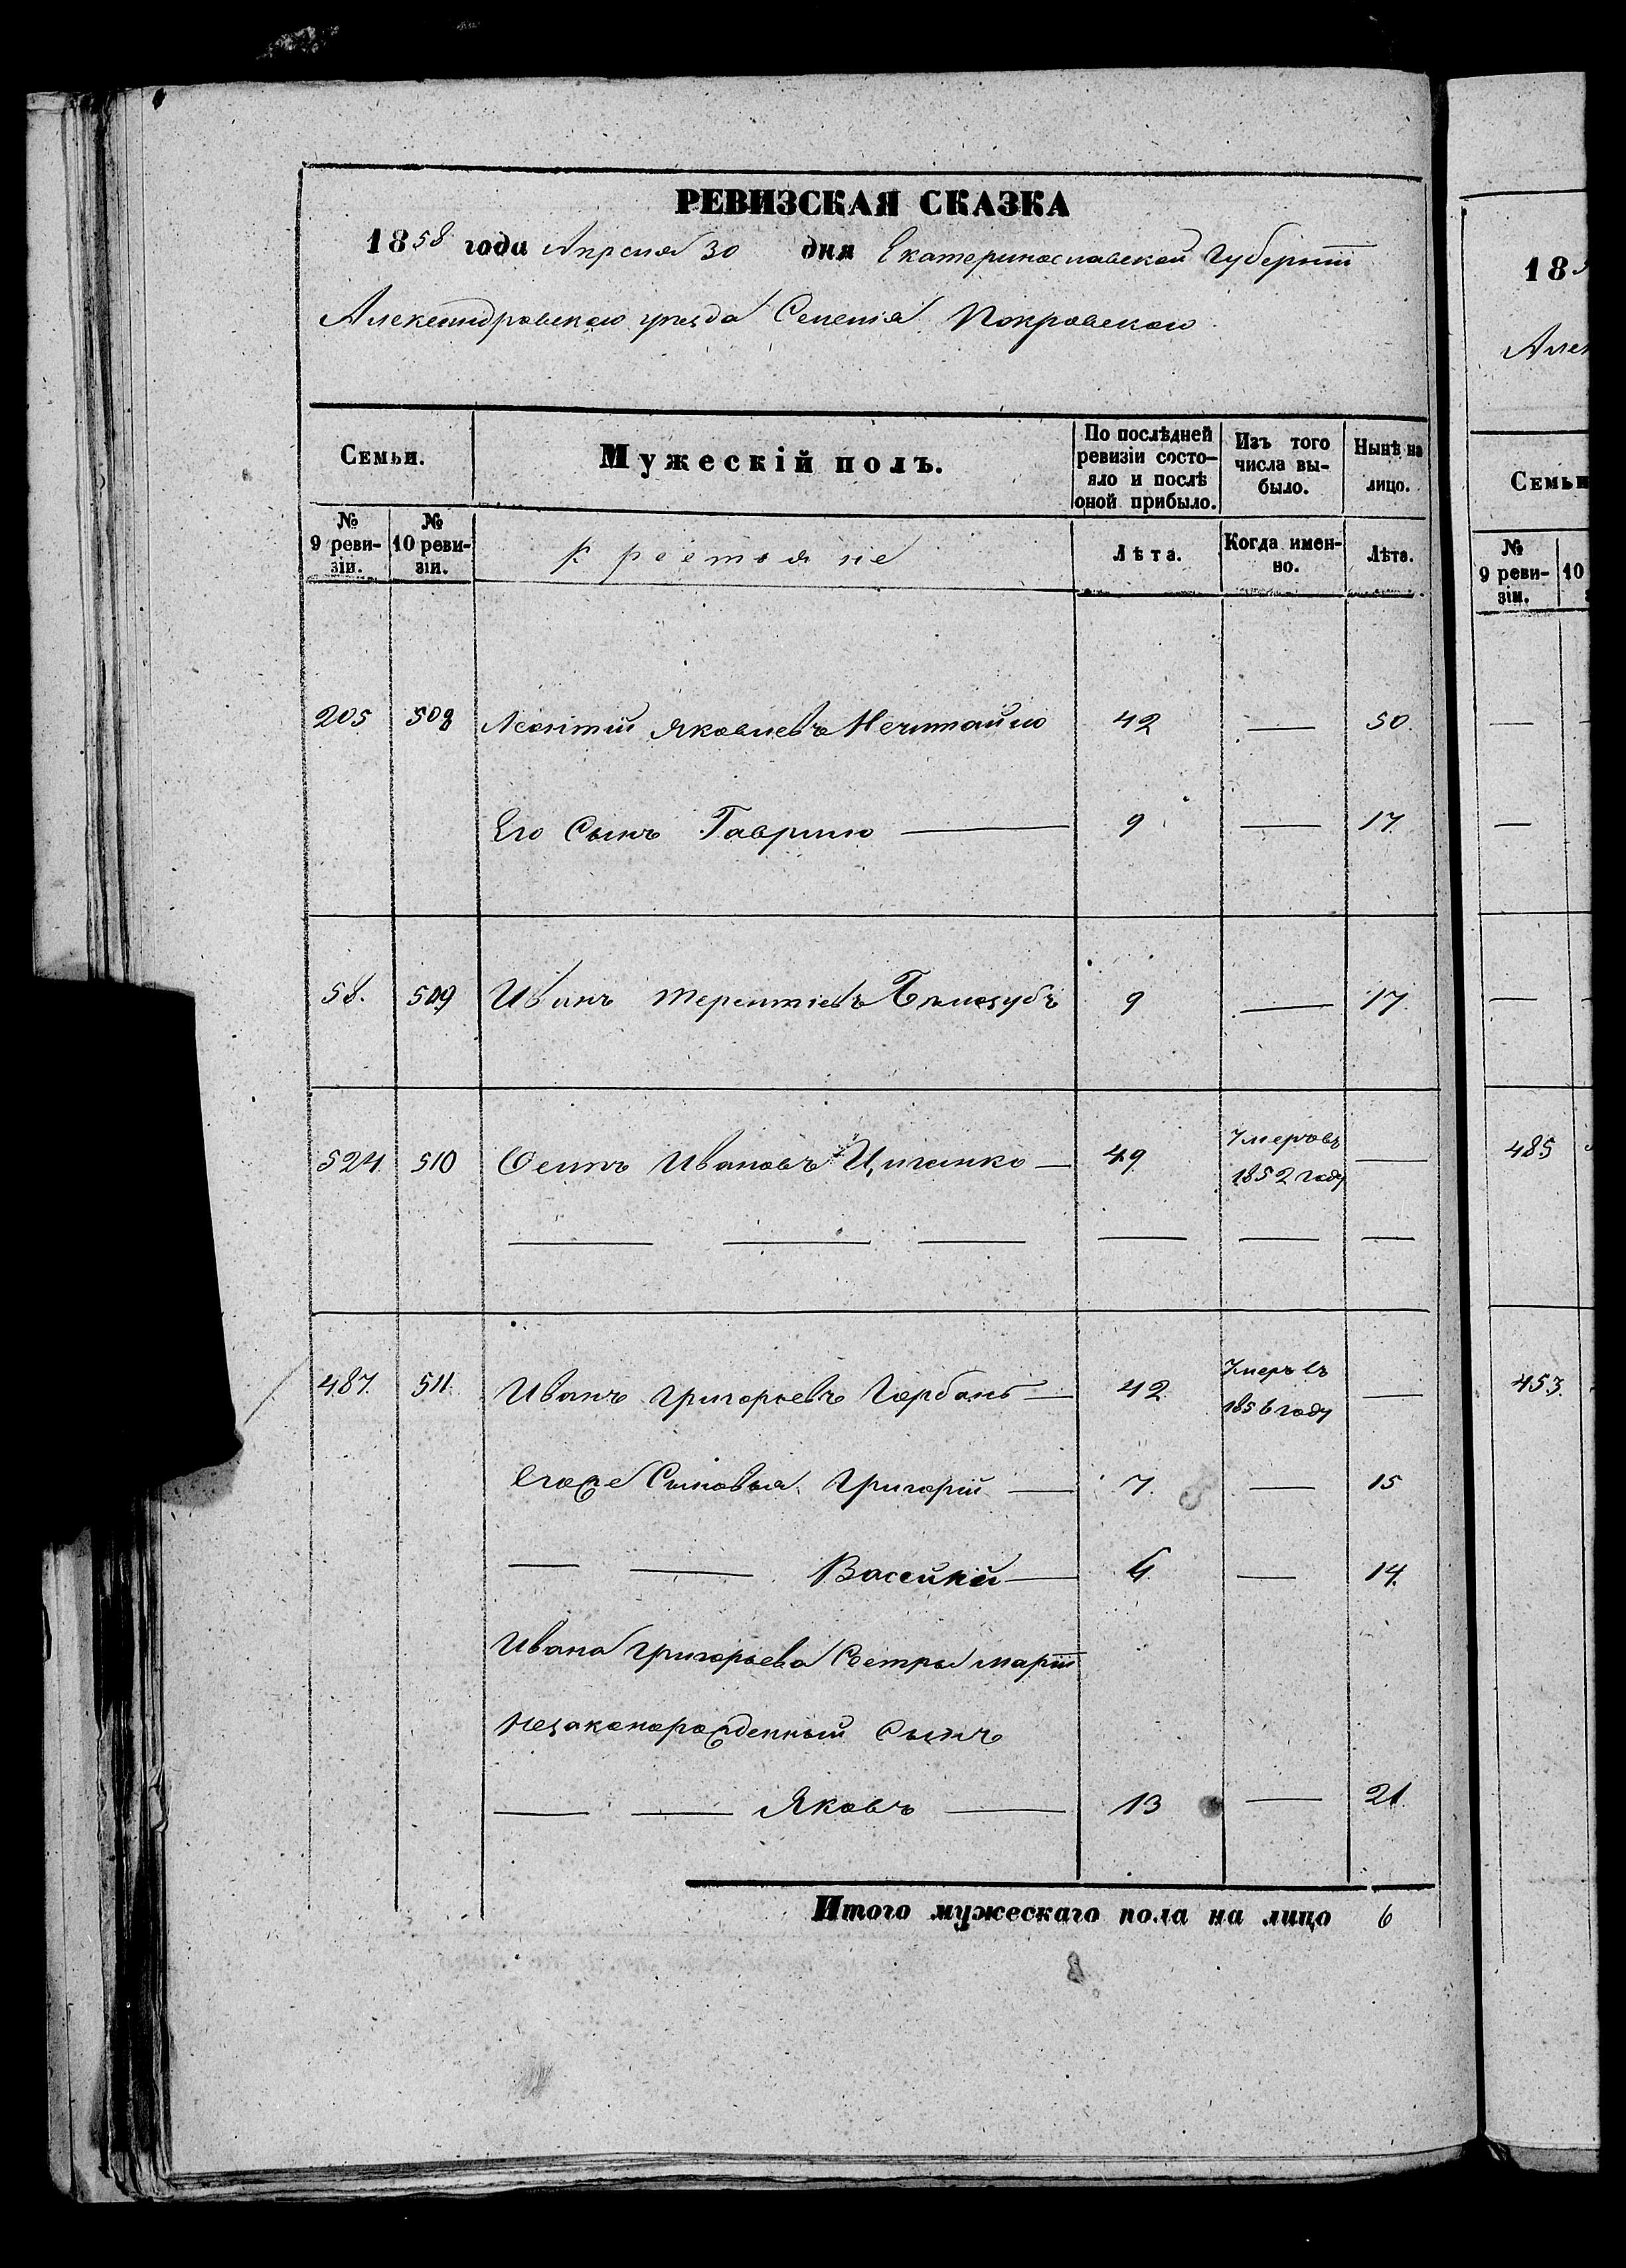 РЕВИЗСКАЯ СКАЗКА
1858 года Апреля 30 дня Екатеринославской Губернiи
Александровского уѣзда Селенiя Покровского
Семьи. Мужескiй полъ. По послѣдней ревизiи состо-яло и послѣ оной прибыло. Изъ того числа вы-было. Нынѣ на лицо.
№ 9 реви-зiи. № 10 реви-зiи. Крестьяне Лѣта. Когда имен-но. Лѣта.
205 508 Леонтiй Яковлевъ Нечитайло 42 — 50.
Его Сынъ Гаврило — 9 — 17.
58. 509 Иванъ Терентiевъ Бѣлозубъ 9 — 17.
524 510 Осипъ Ивановъ Циганко — 49 Умеръ въ 1852 году —
487. 511. Иванъ Григорьевъ Горбань — 42. Умеръ въ 1856 году —
Егоже Сыновья Григорiй — 7. — 15
— — Василiй — 6. — 14.
Ивана Григорьева Сестры Марiи
Незаконорожденный Сынъ
— — Яковъ — 13 — 21.
Итого мужескаго пола на лицо 6
185
Алек
Семьи
№ 9 реви-зiи. 10
485
453.